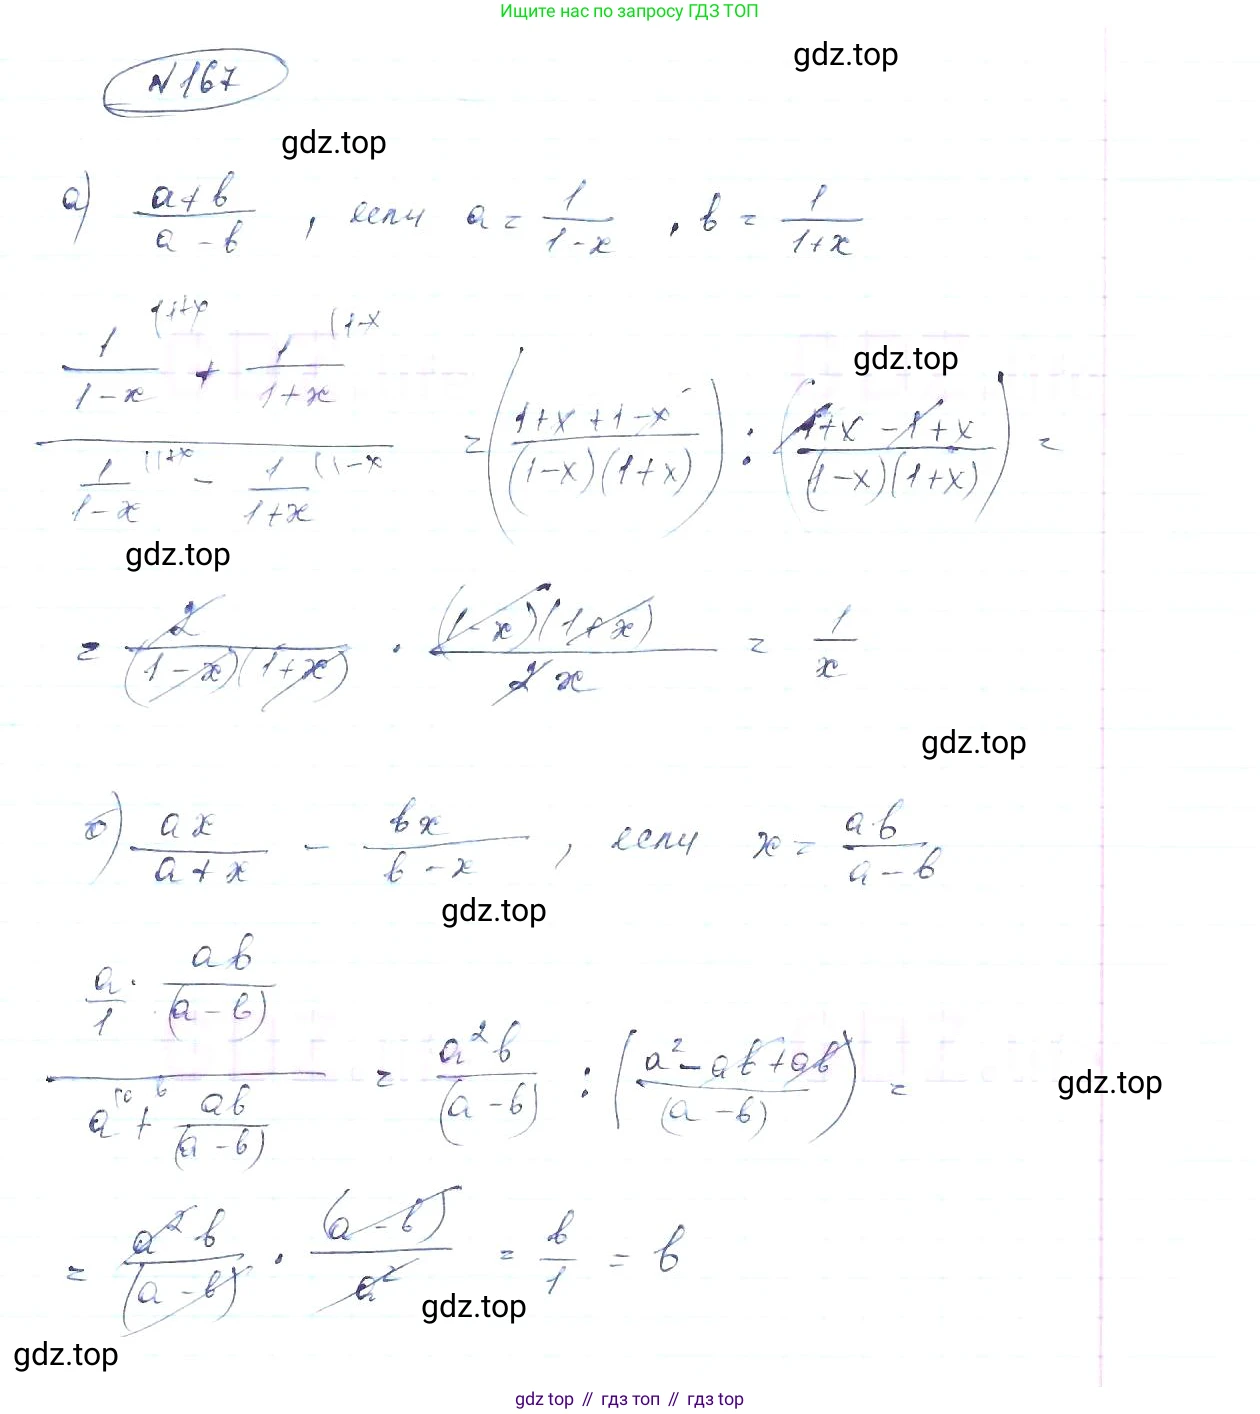 Ищите нас по запросу ГДЗ ТОП
gdz.top
№167
gdz.top
а) (a+b)/(a-b), если a = 1/(1-x), b = 1/(1+x)
(1/(1-x) (1+x + 1/(1+x) (1-x) / (1/(1-x) (1+x - 1/(1+x) (1-x) = ((1+x+1-x)/((1-x)(1+x))) : ((1+x-1+x)/((1-x)(1+x))) =
gdz.top
gdz.top
= 2/((1-x)(1+x)) · ((1-x)(1+x))/(2x) = 1/x
gdz.top
б) ax/(a+x) - bx/(b-x), если x = ab/(a-b)
gdz.top
(a/1 · ab/(a-b)) / (a + ab/(a-b)) = a²b/(a-b) : ((a²-ab+ab)/(a-b)) =
gdz.top
= a²b/(a-b) · (a-b)/a² = b/1 = b
gdz.top
gdz.top
gdz top // гдз топ // gdz top